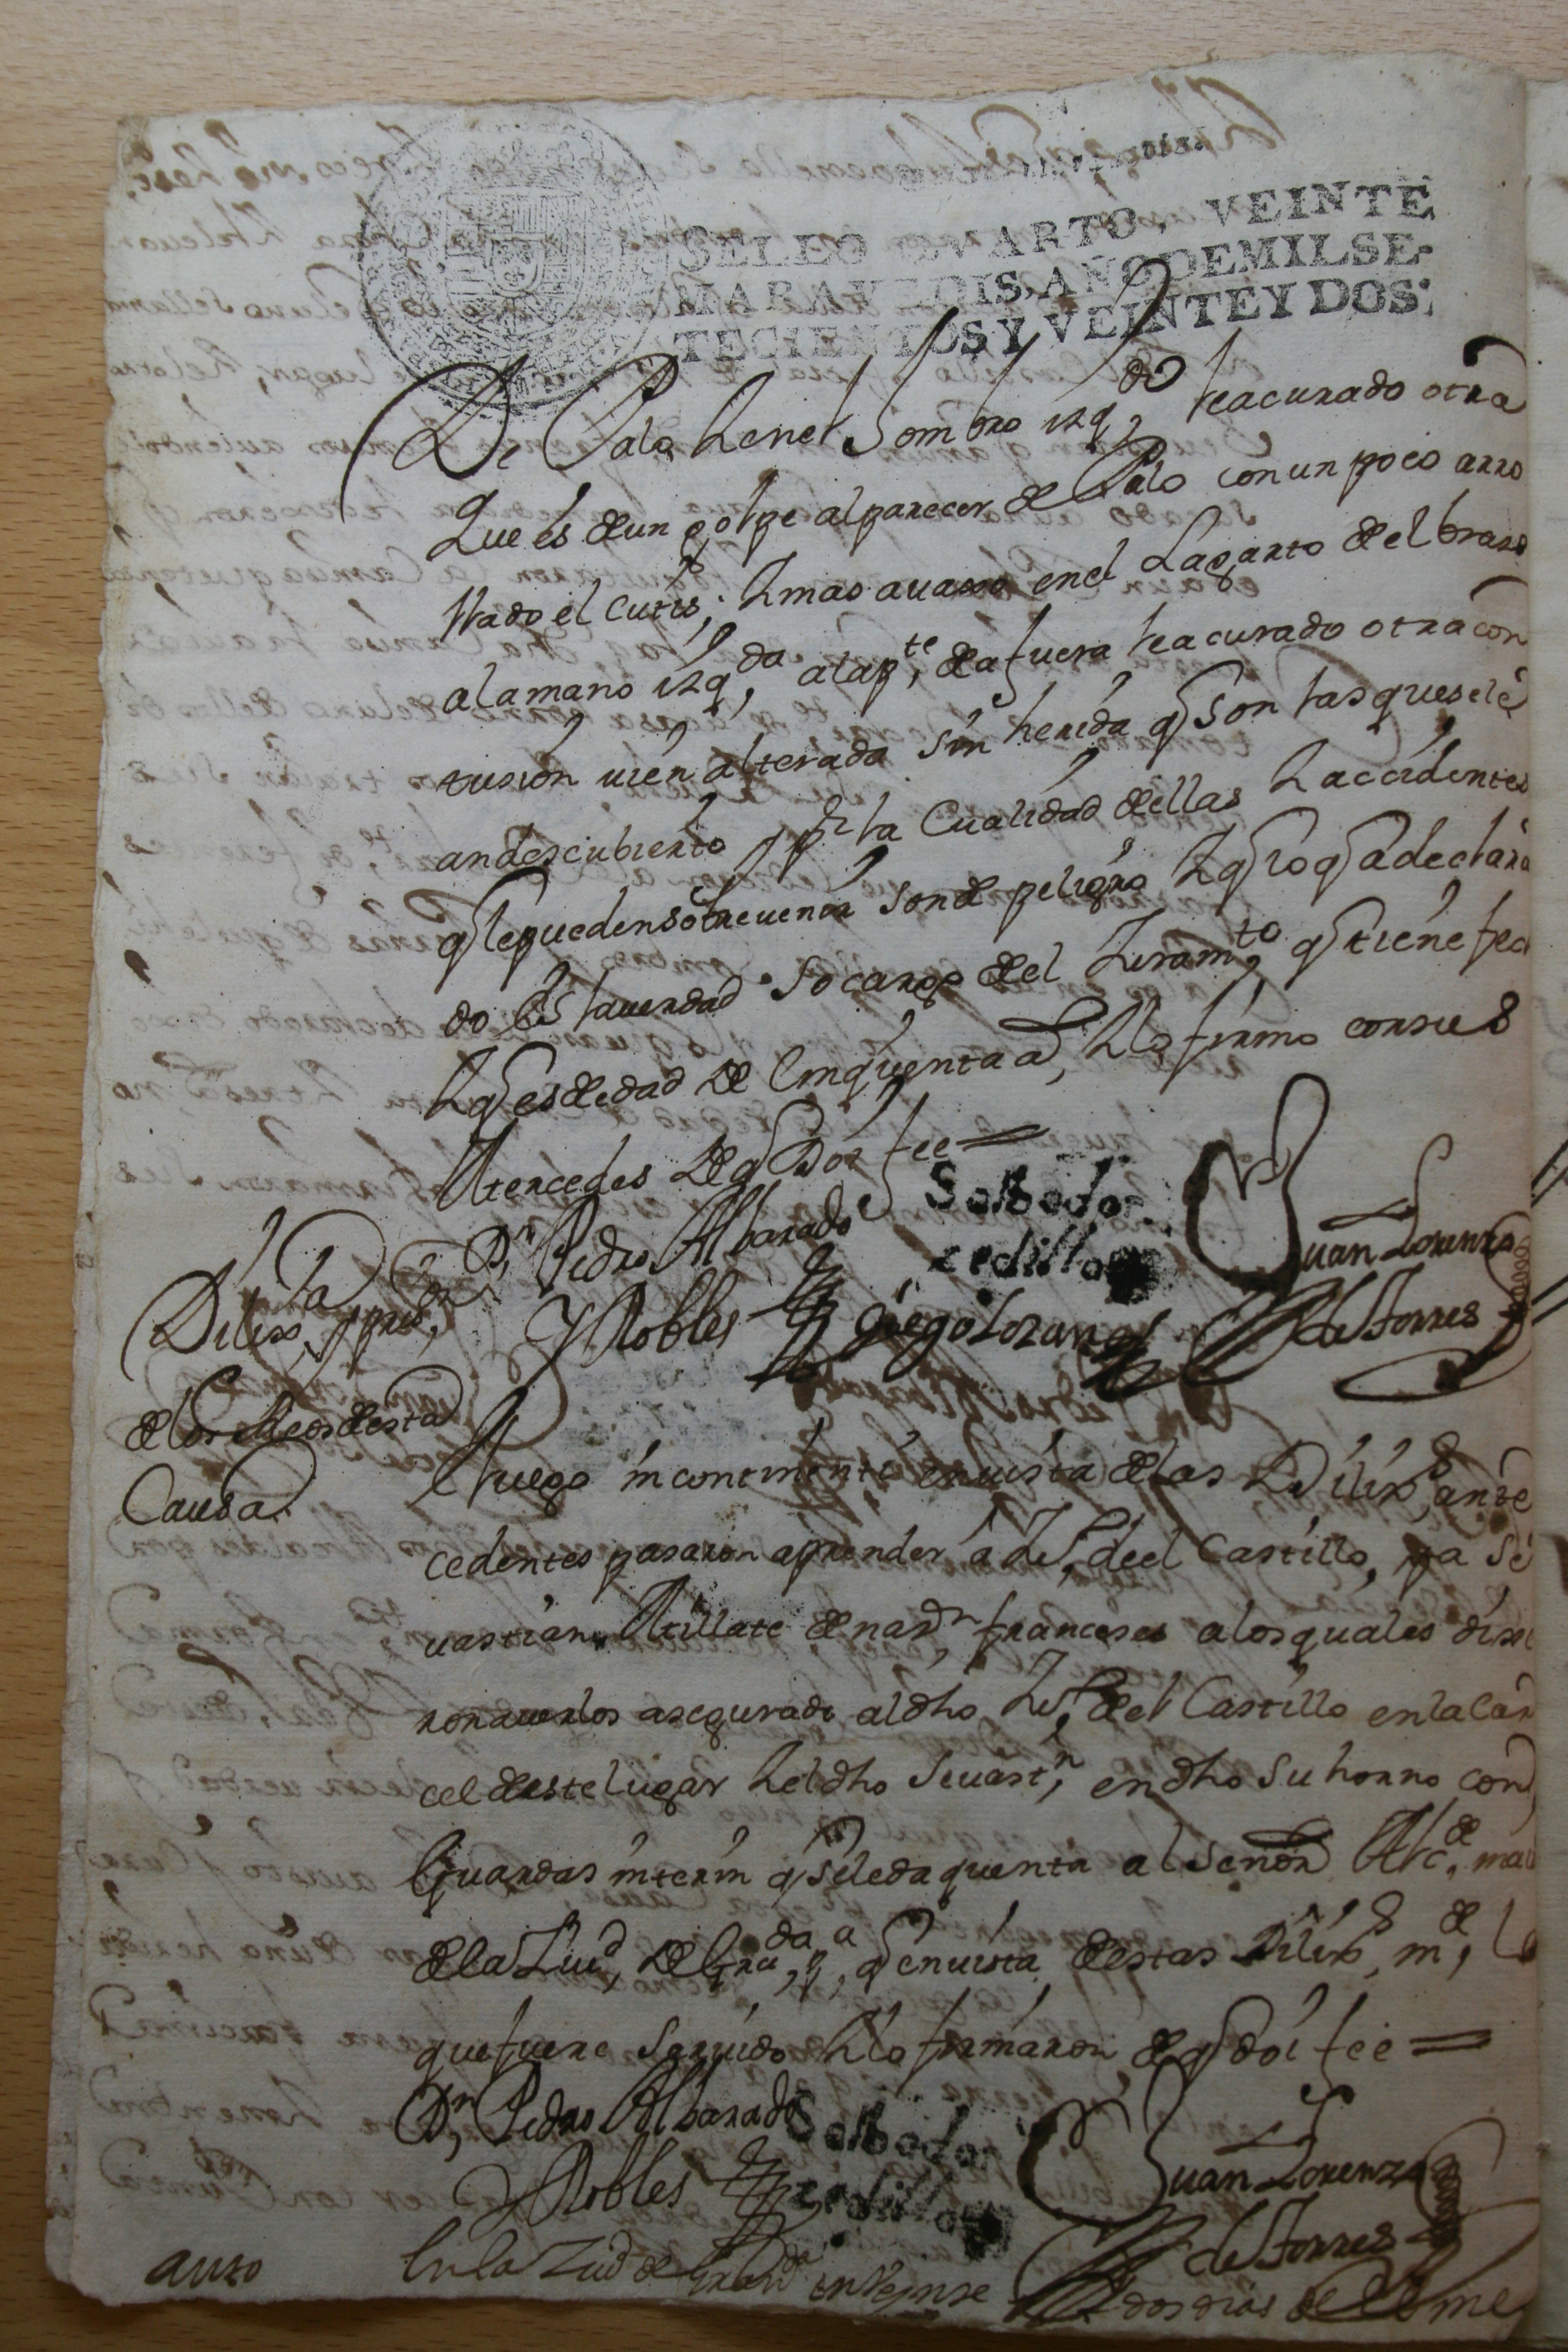 SELLO QVARTO, VEINTE
MARAVEDIS, AÑO DE MIL SE-
TECIENTOS Y VEINTE Y DOS.
De Palo Y en el Hombro izq.do ha curado otra
que es de un golpe al parecer de Palo con un poco arro
llado el cutis; Y mas avaxo en el Lagarto del brazo
a la mano izq.da a la p.te de afuera ha curado otra con
tusion vien alterada sin herida q son las que se le
an descubierto y p.r la Cualidad de ellas Y accidentes
q le pueden sobrevenir son de peligro Y q lo q a declara
do Es la verdad so cargo de el Juram.to q tiene fec
Y q es de edad de Cinquenta a, Y lo firmo con sus
Mercedes De q Doi fee =
D.n Pedro Albarado
Salbador
Juan Lorenzo
Y Robles
zedillo
Diego Lozano
de Torres
Dilix.a y pris.on
de los Reos de esta
Causa
Luego incontinenti en vista de las Dilix.s ante
cedentes pasaron a prender a Ju.o de el Castillo, y a Se
vastian Millate de naz.n franceses a los quales dixe
ron averlos asegurado al dho Ju.o de el Castillo en la Car
cel de este lugar Y el dho Sevast.n en dho su horno con
Guardas interin q se le da quenta al Señor Alc.de mai
de la Ziu.d de Gra.da p.a q en vista de estas Dilix.s m.de lo
que fuere servido Y lo firmaron de q doi fee =
D.n Pedro Albarado
Salbador
Juan Lorenzo
Y Robles
zedillo
de Torres
auto
En la Ziud de Gran.da en Veinte
dos dias de el me